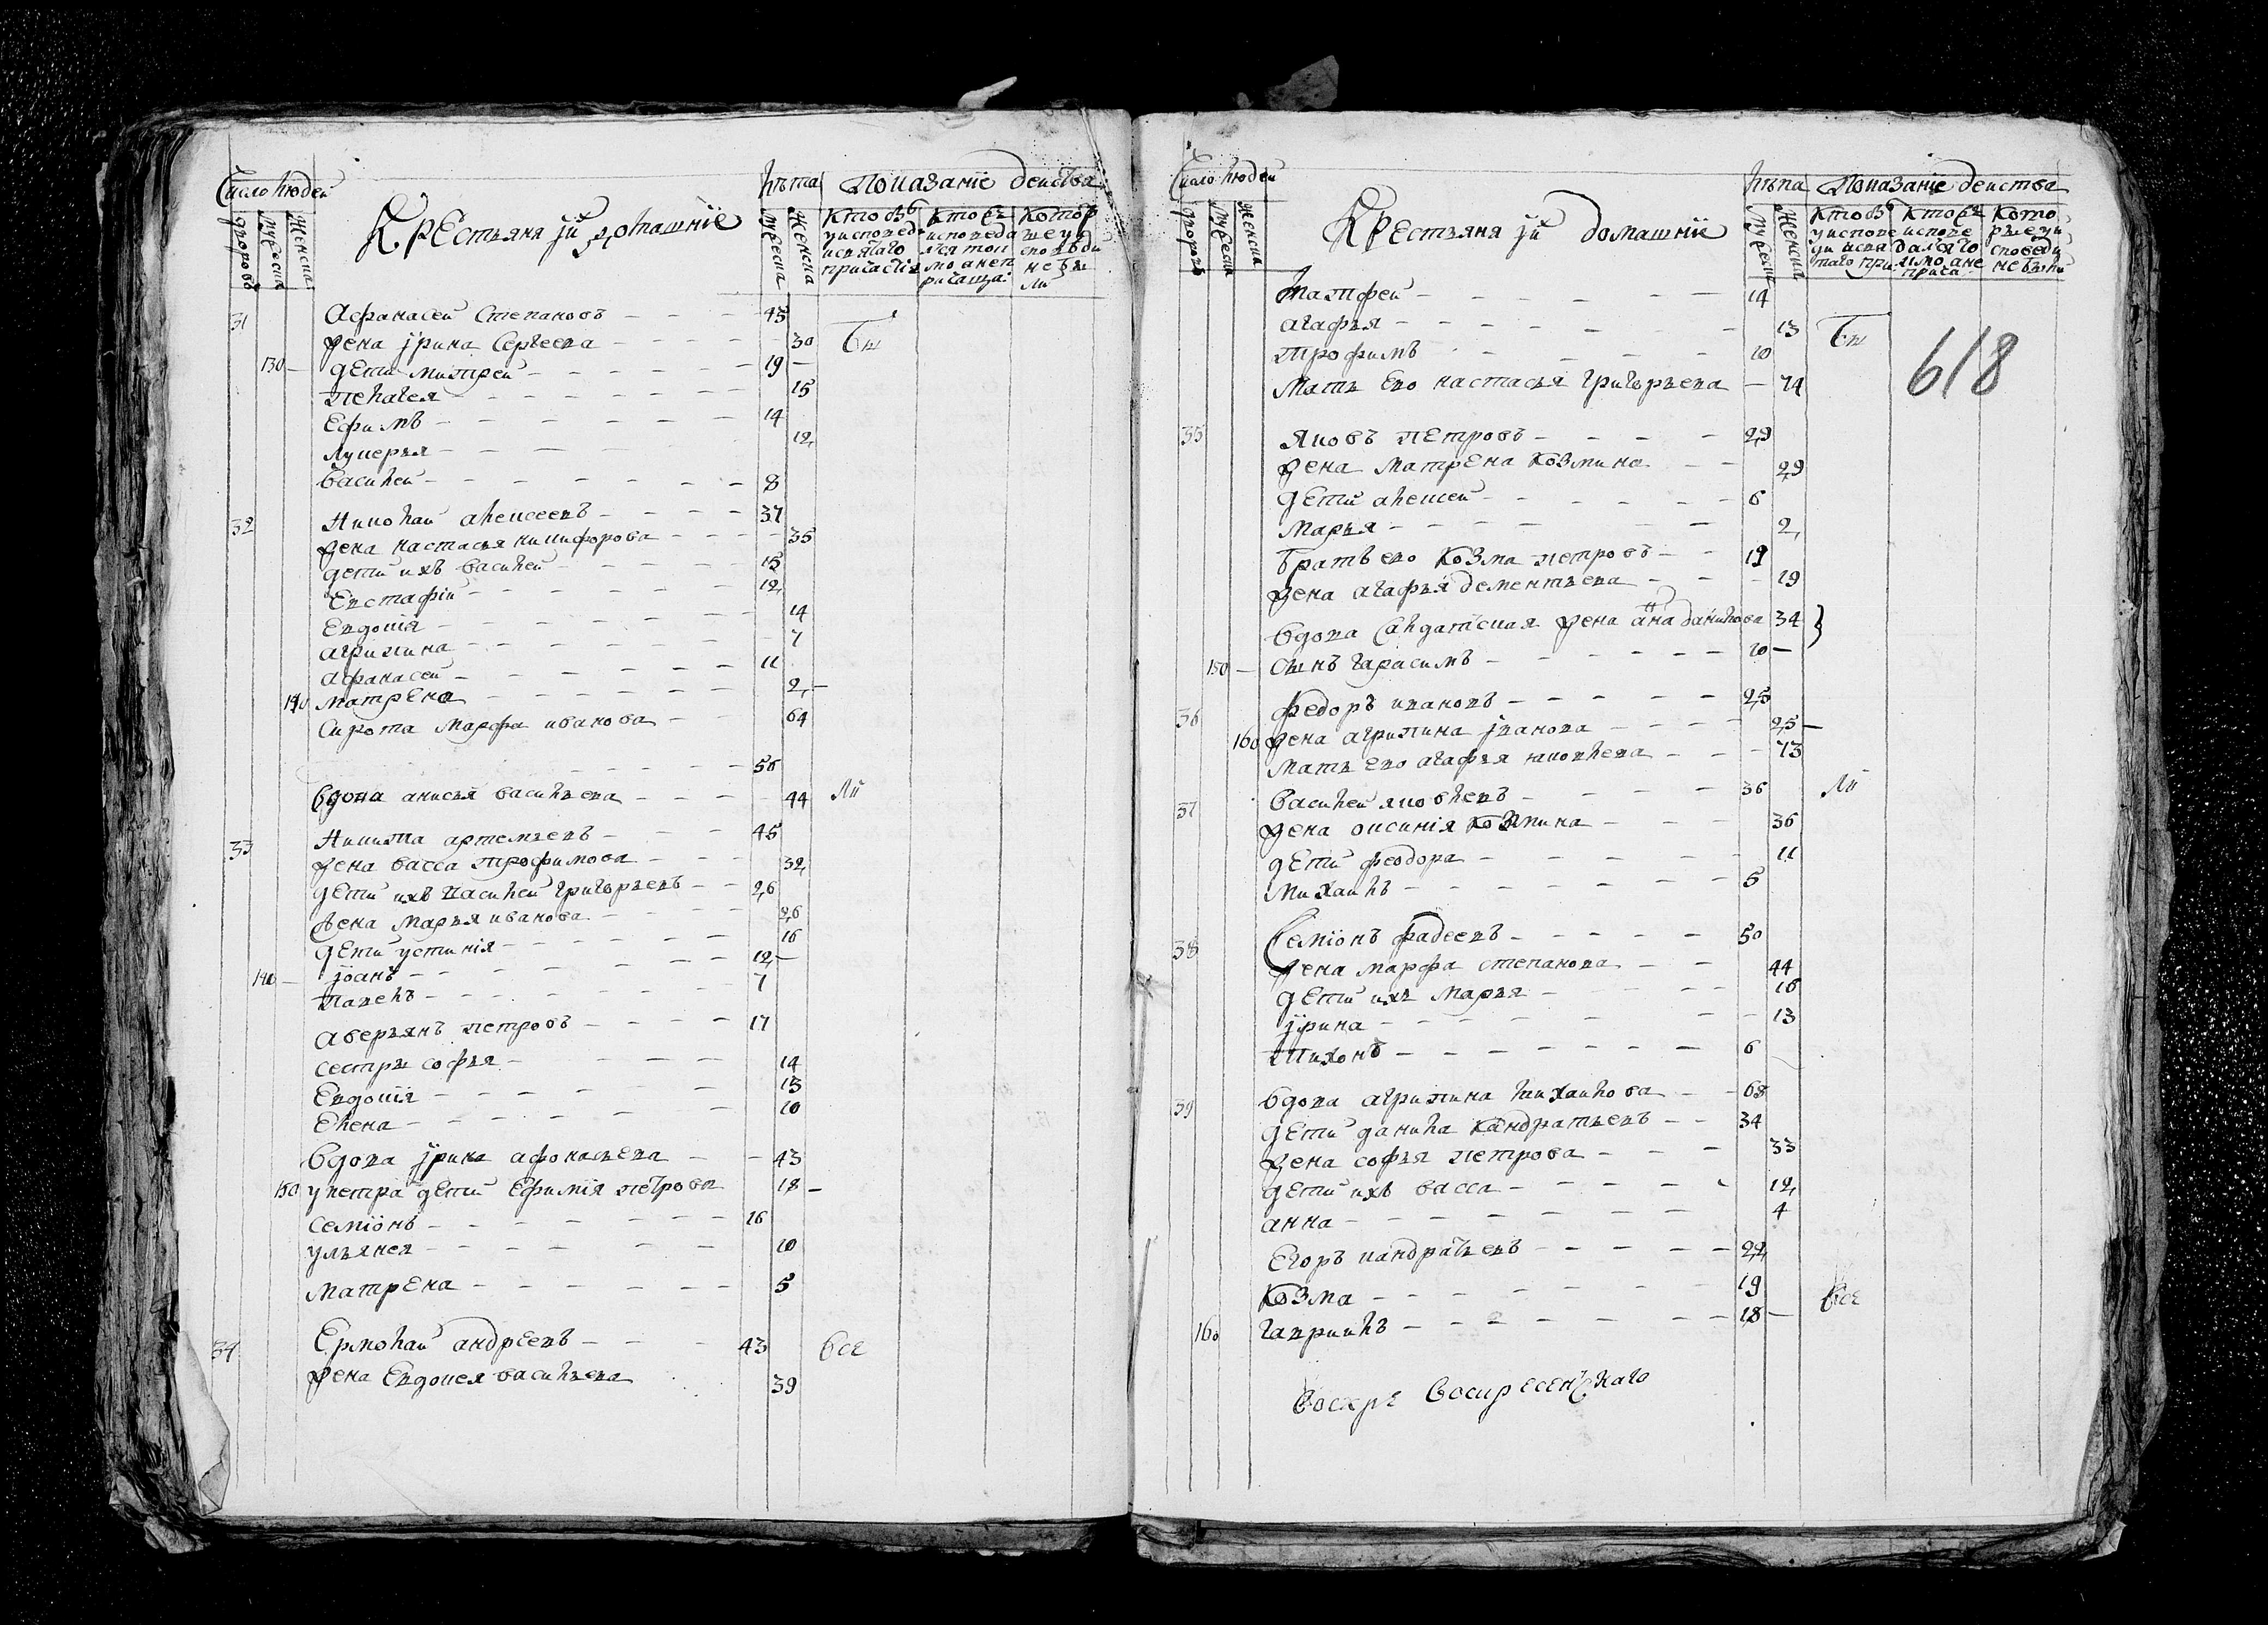 Число людей
дворовъ
мужеска
женска
Крестьяня ӥ домашнїе
Лѣта
мужеска
женска
Показанїе деиства
Кто въ
у исповед
и свѧтаго
причастїѧ
Кто въ
исповеда
лся токмо а не п
ричаща
Котор
ые у и
сповѣди
не бы
ли
31 Афанасей Степановъ 45
жена ӥрина Сергеева 30 Бы
130 дети митрей 19
пелагея 15
Ефимъ 14
лукерья 12
василей 8
32 Николай алексеевъ 37
жена настасья никифорова 35
дети ихъ василей 15
Евстафїй 12
Евдокїя 14
агрипина 7
афанасей 11
140 матрена 2
Сирота марфа иванова 64
56
вдова анисья васильева 44 ли
33 Никита артемьевъ 45
жена васса трофимова 32
дети ихъ василей григорьевъ 26
жена марья иванова 26
дети устинїя 16
140 ӥоанъ 12
павелъ 7
аверьянъ петровъ 17
сестры софья 14
Евдокїя 13
Елена 10
вдова ӥрина афонасьева 43
150 у петра дети Ефимїя петрова 18
семїонъ 16
ульянея 10
матрена 5
34 Ермолай андреевъ 43 все
жена Евдокея васильева 39
Число людей
дворовъ
мужеска
женска
Крестьяня ӥ домашнїе
Лѣта
мужеска
женска
Показанїе деиства
Кто въ
у испове
ди и свѧ
таго при
Кто въ
испове
дался то
кмо а не
прича
Кото
рые у и
споведи
не были
618
матфей 14
агафья 13 Бы
трофимъ 10
мать ево настасья григорьева 74
35 яковъ петровъ 29
жена матрена козмина 29
дети алексей 6
марья 2
братъ ево козма петровъ 19
жена агафья дементьева 19
вдова салдатская жена анна данилова 34
150 сынъ гарасимъ 10
36 федоръ ивановъ 25
160 жена агрипина ӥванова 25
мать ево агафья яковлева 73
37 василей яковлевъ 36 ли
жена оксинїя козмина 36
дети феодора 11
михаилъ 5
38 Семїонъ фадеевъ 50
жена марфа степанова 44
дети ихъ марья 16
ӥрина 13
тихонъ 6
39 вдова агрипина михаилова 68
дети данила кандратьевъ 34
жена софья петрова 33
дети ихъ васса 12
анна 4
Егоръ кандратьевъ 22
козма 19 все
160 гавриилъ 18
воскре воскресенскаго